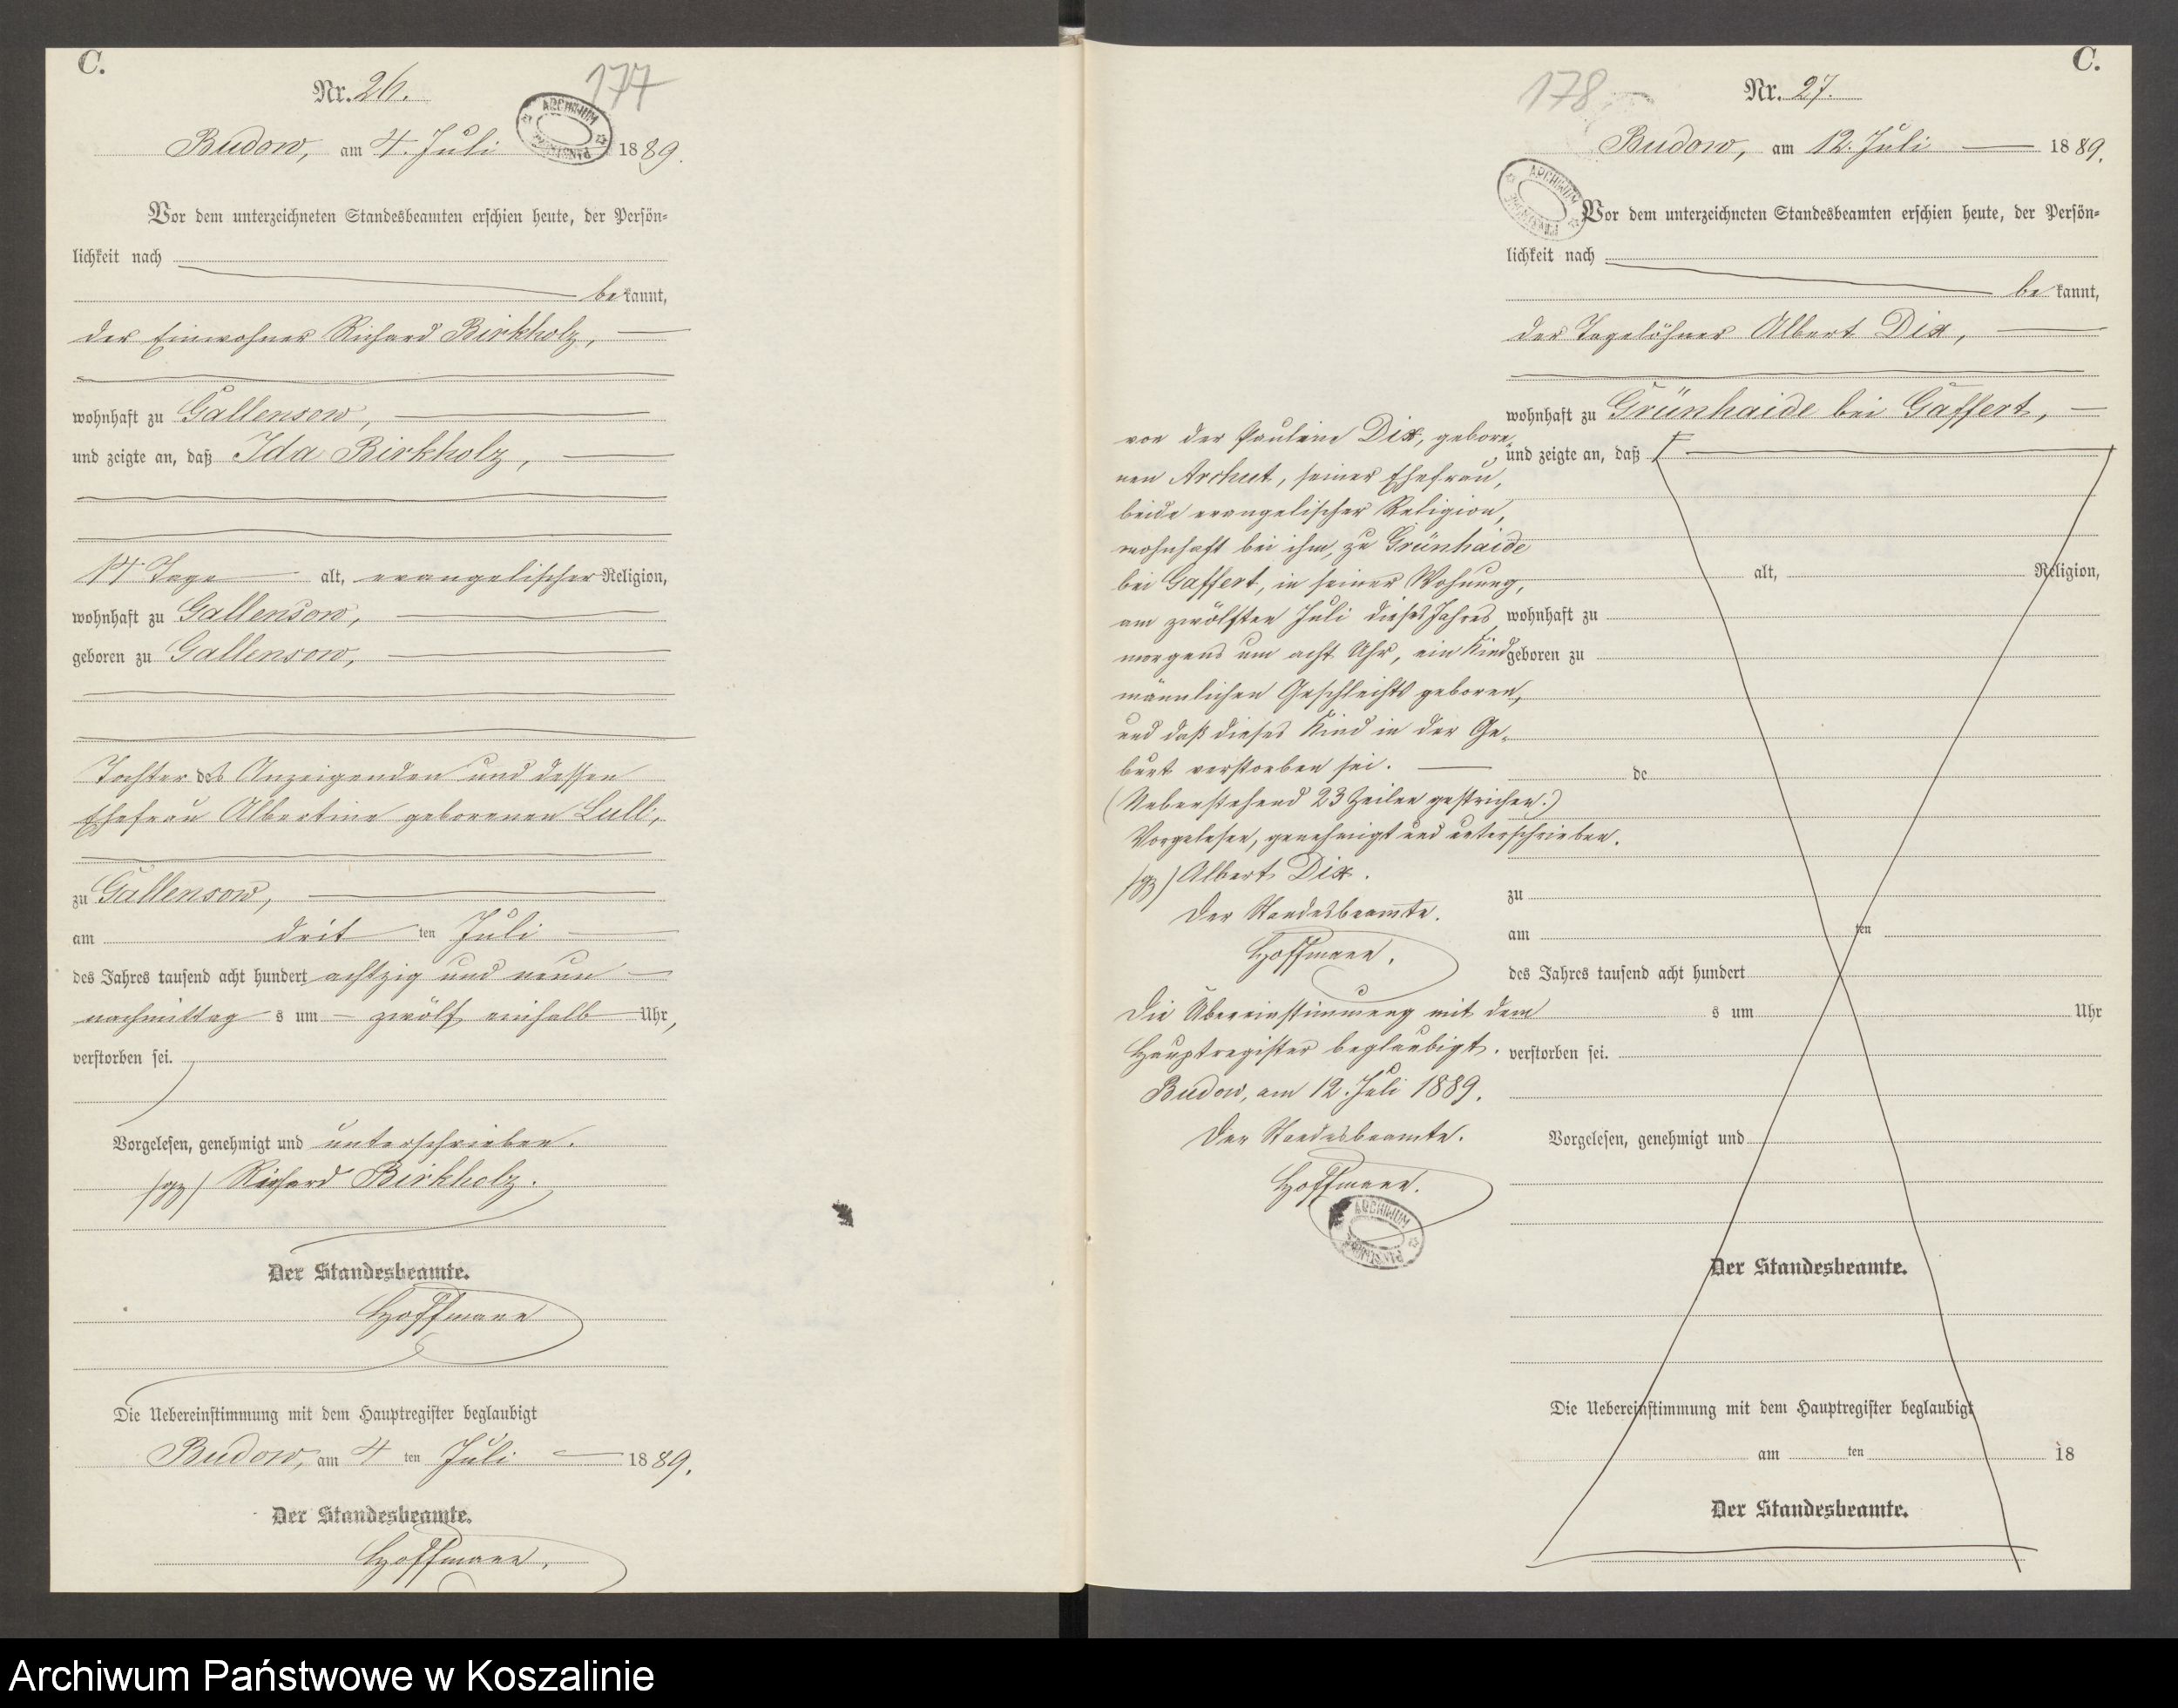 C.
177
Nr. 26.
ARCHIWUM
Budow, am 4. Juli 1889.
Vor dem unterzeichneten Standesbeamten erschien heute, der Persön-
lichkeit nach
bekannt,
der Einwohner Richard Birkholz,
wohnhaft zu Gallensow,
und zeigte an, daß Ida Birkholz,
14 Tage alt, evangelischer Religion,
wohnhaft zu Gallensow,
geboren zu Gallensow,
Tochter des Anzeigenden und dessen
Ehefrau Albertine geborenen Lull,
zu Gallensow,
am dritten Juli
des Jahres tausend acht hundert achtzig und neun
nachmittags um zwölf einhalb Uhr,
verstorben sei.
Vorgelesen, genehmigt und unterschrieben.
(gz) Richard Birkholz.
Der Standesbeamte.
Hoffmann
Die Uebereinstimmung mit dem Hauptregister beglaubigt
Budow, am 4ten Juli 1889.
Der Standesbeamte.
Hoffmann.
C.
178
Nr. 27.
Budow, am 12. Juli 1889.
ARCHIWUM
Vor dem unterzeichneten Standesbeamten erschien heute, der Persön-
lichkeit nach
bekannt,
der Tagelöhner Albert Dix,
wohnhaft zu Grünhaide bei Gaffert,
und zeigte an, daß
von der Pauline Dix, gebore-
nen Archut, seiner Ehefrau,
beide evangelischer Religion,
wohnhaft bei ihm, zu Grünhaide
bei Gaffert, in seiner Wohnung,
am zwölften Juli dieses Jahres
morgens um acht Uhr, ein Kind
männlichen Geschlechts geboren,
und daß dieses Kind in der Ge-
burt verstorben sei.
(Ueberstehend 23 Zeilen gestrichen.)
Vorgelesen, genehmigt und unterschrieben.
(gz) Albert Dix.
Der Standesbeamte.
Hoffmann.
Die Übereinstimmung mit dem
Hauptregister beglaubigt.
Budow, am 12. Juli 1889.
Der Standesbeamte.
Hoffmann.
ARCHIWUM
alt, Religion,
wohnhaft zu
geboren zu
de
zu
am ten
des Jahres tausend acht hundert
s um Uhr
verstorben sei.
Vorgelesen, genehmigt und
Der Standesbeamte.
Die Uebereinstimmung mit dem Hauptregister beglaubigt
am ten 18
Der Standesbeamte.
Archiwum Państwowe w Koszalinie